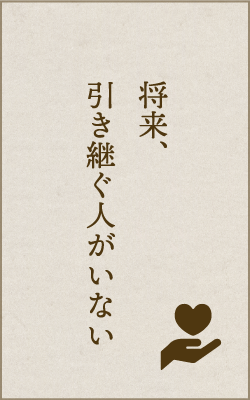 将来、
引き継ぐ人がいない